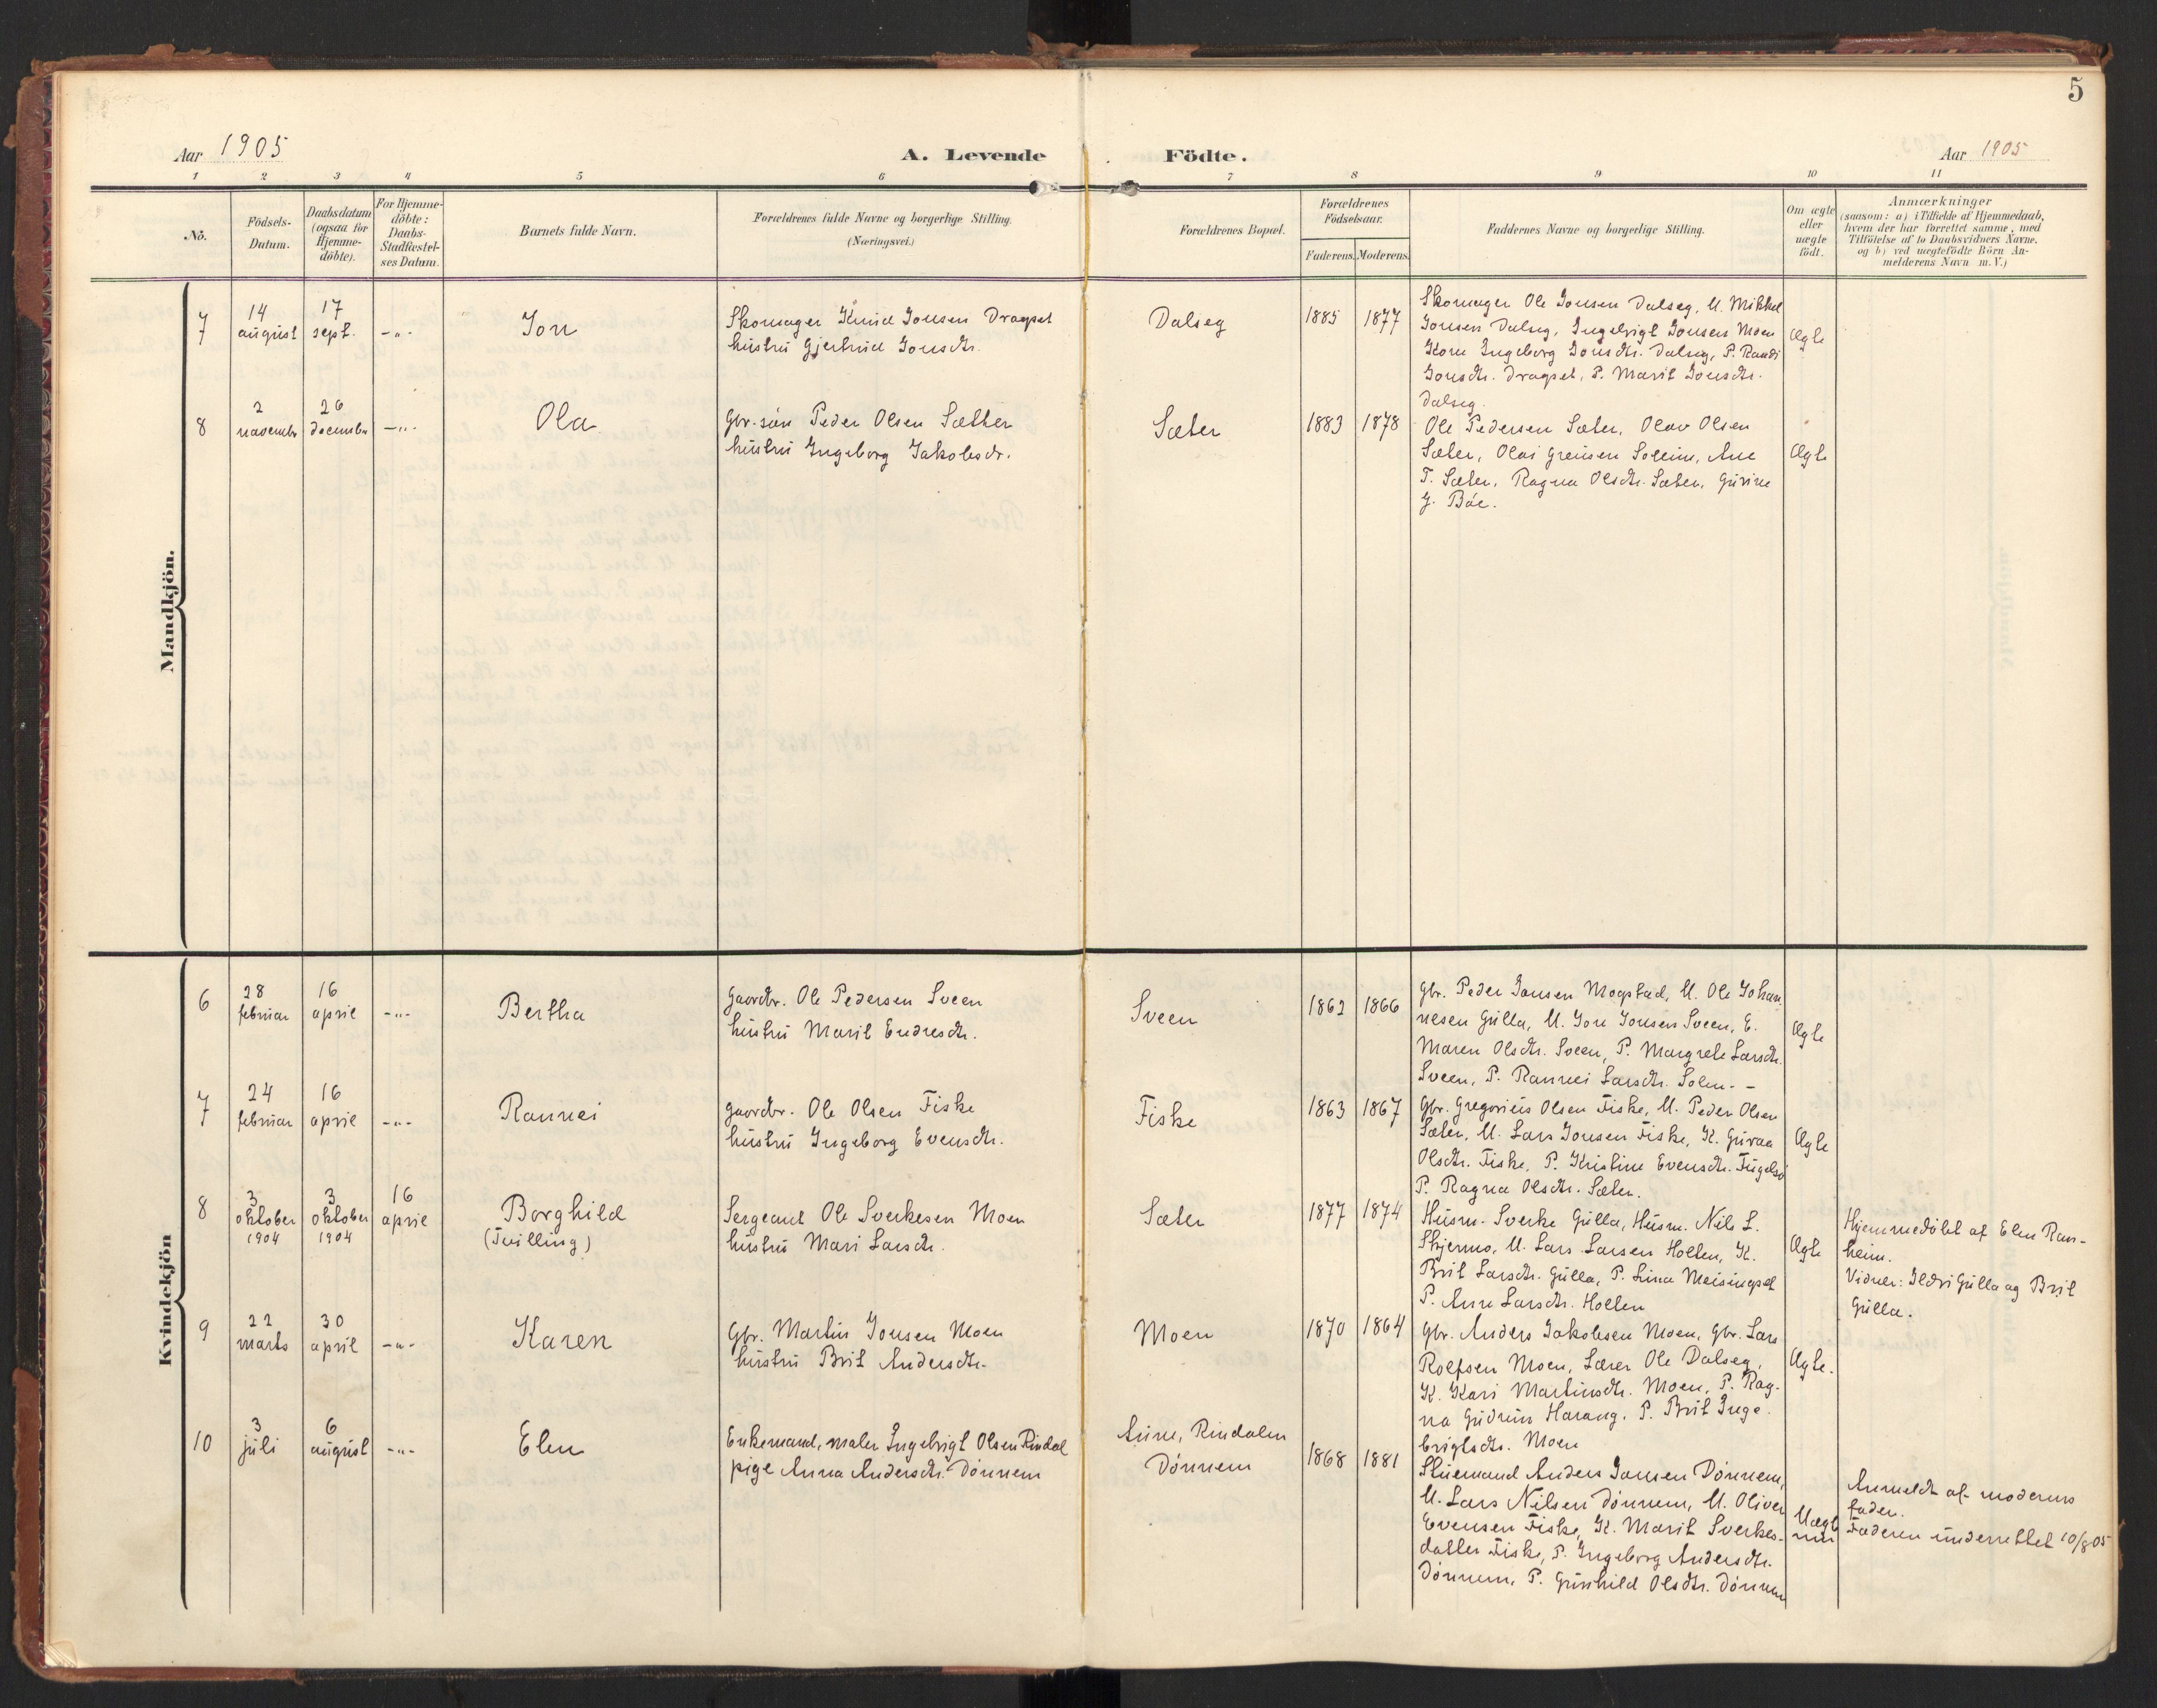 5
Aar 1905
A. Levende Födte.
Aar 1905
1 2 3 4 5 6 7 8 9 10 11
No.
Födsels-Datum.
Daabsdatum (ogsaa for Hjemme-döbte).
For Hjemme-döbte: Daabs-Stadfæstel-ses Datum.
Barnets fulde Navn.
Forældrenes fulde Navne og borgerlige Stilling. (Næringsvei.)
Forældrenes Bopæl.
Forældrenes Födselsaar.
Faderens. Moderens.
Faddernes Navne og borgerlige Stilling.
Om ægte eller uægte födt.
Anmærkninger
(saasom: a) i Tilfælde af Hjemmedaab,
hvem der har forrettet samme, med
Tilföielse af to Daabsvidners Navne.
og b) ved uægtefödte Börn An-
melderens Navn m. V.)
Mandkjön.
7
14 august
17 sept.
-"-
Jon
Skomager Knud Jonsen Dragset
hustru Gjertrud Jonsdtr.
Dalseg
1885 1877
Skomager Ole Jonsen Dalseg, U. Mikkel
Jonsen Dalseg, Ingebrigt Jonsen Moen
Kone Ingeborg Jonsdtr. Dalseg, P. Randi
Jonsdtr. Dragset, P. Marit Jonsdtr.
Dalseg.
Ægte
8
2 november
26 december
-"-
Ola
Gbr. søn Peder Olsen Sæther
hustru Ingeborg Jakobsdr.
Sæter
1883 1878
Ole Pedersen Sæter, Olav Olsen
Sæter, Olai Grensen Soleim, Ane
T. Sæter, Ragna Olsdtr. Sæter, Gurine
J. Bøe.
Ægte
Kvindekjön
6
28 februar
16 april
-"-
Bertha
Gaardbr. Ole Pedersen Sveen
hustru Marit Endresdtr.
Sveen
1862 1866
Gbr. Peder Jansen Mogstad, U. Ole Johan
nesen Gulla, U. Jon Jonsen Sveen, E.
Maren Olsdtr. Sveen, P. Margrete Larsdtr.
Sveen, P. Rannei Larsdtr. Solem. -
Ægte
7
24 februar
16 april
-"-
Rannei
Gaardbr. Ole Olsen Fiske
hustru Ingeborg Evensdtr.
Fiske
1863 1867
Gbr. Gregorius Olsen Fiske, U. Peder Olsen
Sæter, U. Lars Jonsen Fiske, K. Guraa
Olsdtr. Fiske, P. Kristine Evensdtr. Fugelsø
P. Ragna Olsdtr. Sæter.
Ægte
8
3 oktober 1904
3 oktober 1904
16 april
Borghild
(Tvilling)
Sergeant Ole Sverkesen Moen
hustru Mari Larsdtr.
Sæter
1877 1874
Husm. Sverke Gulla, Husm. Nils L.
Skjermo, U. Lars Larsen Holten, K.
Brit Larsdtr. Gulla, P. Lina Meisingset
P. Anne Larsdtr. Holten
Ægte
Hjemmedøbt af Elen Ran-
heim.
Vidner: Ildri Gulla og Brit
Gulla.
9
22 marts
30 april
-"-
Karen
Gbr. Martin Jonsen Moen
hustru Brit Andersdtr.
Moen
1870 1864
Gbr. Anders Jakobsen Moen, Gbr. Lars
Rolfsen Moen, Lærer Ole Dalseg,
K. Kari Martinsdtr. Moen, P. Rag-
na Gudrun Harang, P. Brit Inge-
brigtsdtr. Moen
Ægte.
10
3 juli
6 august
-"-
Elen
Enkemand, maler Ingebrigt Olsen Rindal
pige Anna Andersdtr. Dønnem
Aune, Rindalen
Dønnem
1868 1881
Stuemand Anders Jansen Dønnem,
U. Lars Nilsen Dønnem, U. Oliver
Evensen Fiske, K. Marit Sverkes-
datter Fiske, P. Ingeborg Andersdtr.
Dønnem, P. Gunhild Olsdtr. Dønnem
Uægte
Anmeldt af moderens
fader.
Faderen underrettet 10/8 05